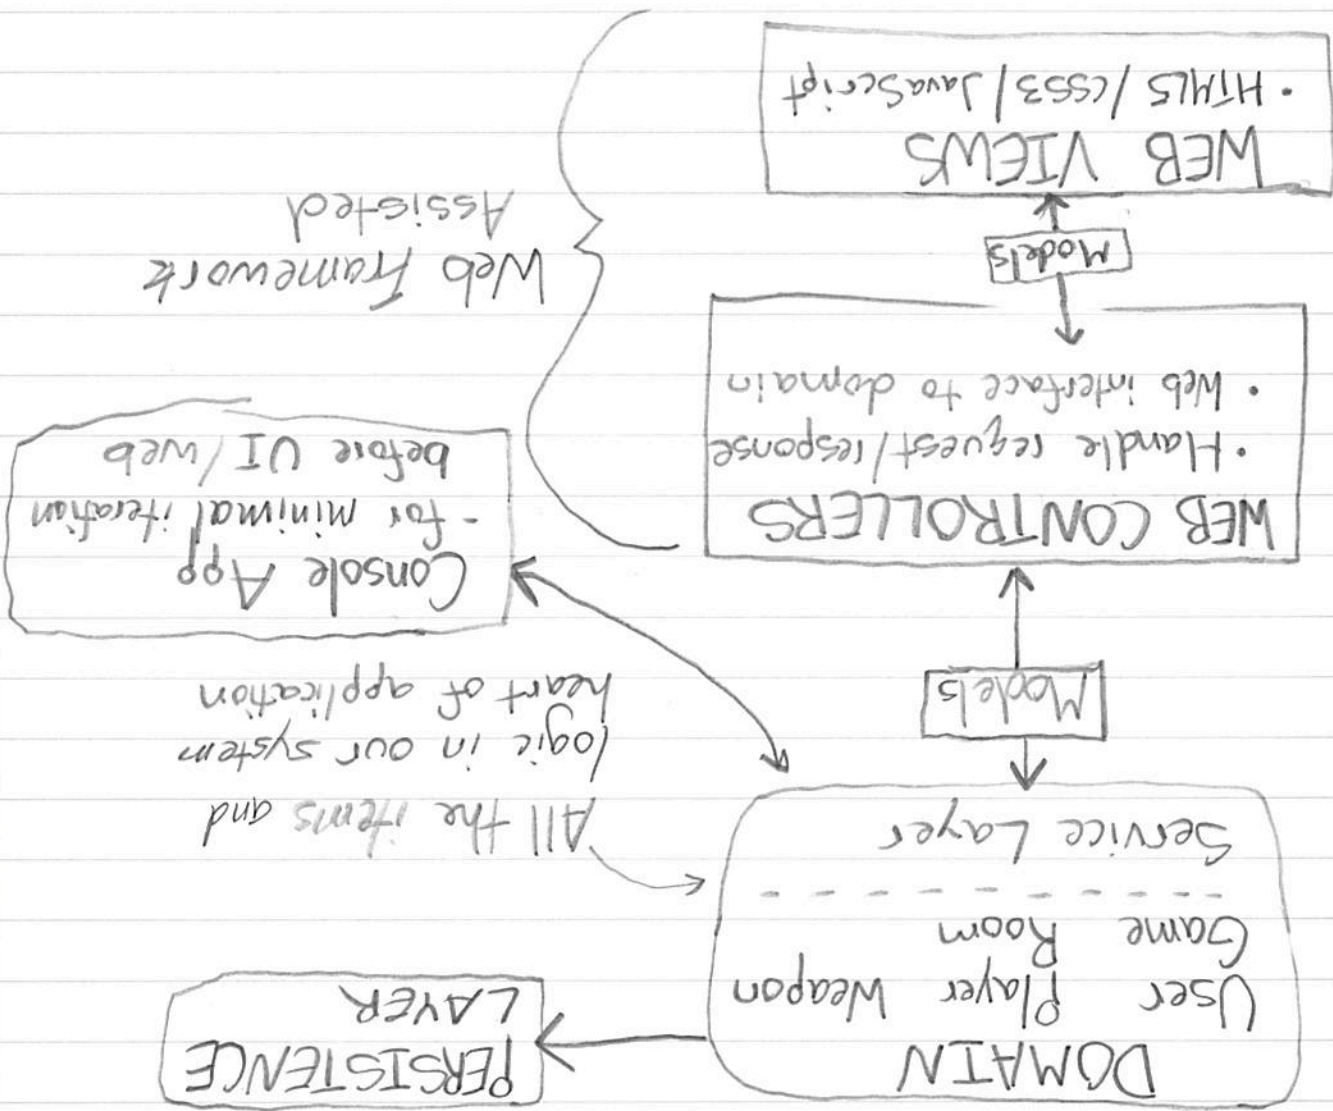 DOMAIN
User Player Weapon
Game Room
Service Layer
PERSISTENCE
LAYER
All the items and
logic in our system
heart of application
Models
Console App
- for minimal iteration
before UI/web
WEB CONTROLLERS
• Handle request/response
• Web interface to domain
Web Framework
Assisted
Models
WEB VIEWS
• HTML5/CSS3/JavaScript